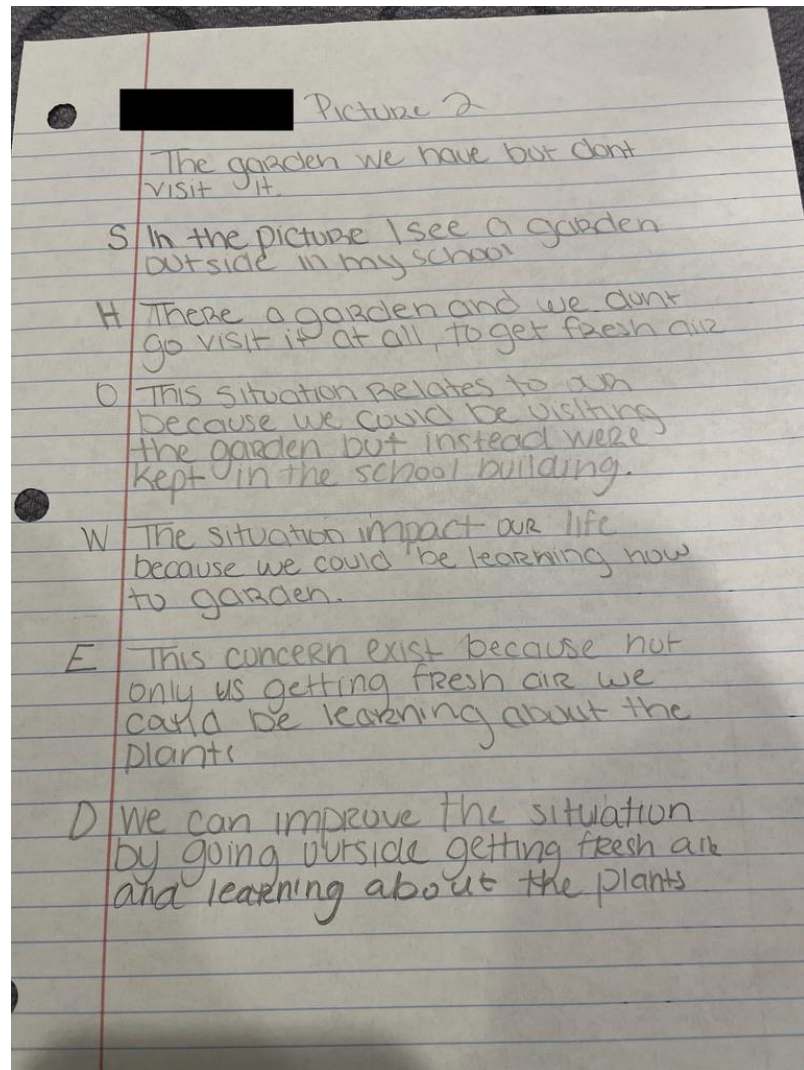 Picture 2
The garden we have but dont
visit it.
S In the picture I see a garden
outside in my school
H There a garden and we dont
go visit it at all, to get fresh air
O This situation Relates to our
because we could be visiting
the garden but instead were
kept in the school building.
W The situation impact our life
because we could be learning how
to garden.
E This concern exist because not
only us getting fresh air we
could be learning about the
plants
D We can improve the situation
by going outside getting fresh air
and learning about the plants